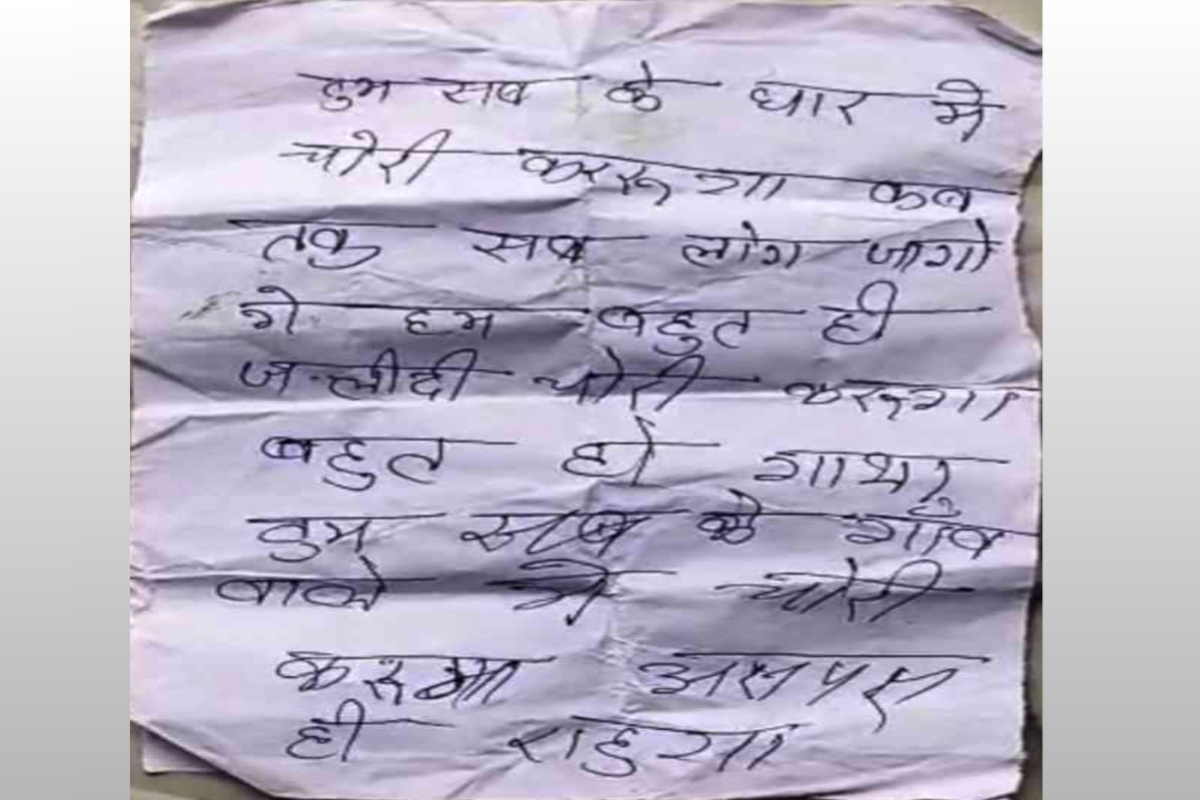 तुम सब के घार मे
चोरी कररूगा कब
तक सब लोग जागो
गे हम बहुत ही
जलीदी चोरी करूगा
बहुत हो गाया
तुम सब के गाँव
वाले मे चोरी
करूगा असपस
ही राहुगा